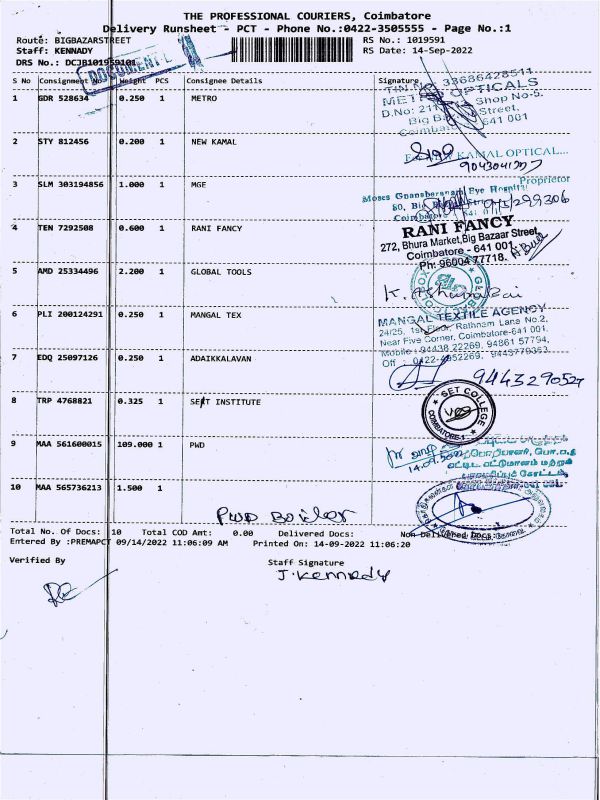 THE PROFESSIONAL COURIERS, Coimbatore
Delivery Runsheet - PCT - Phone No.:0422-3505555 - Page No.:1
Route: BIGBAZARSTREET RS No.: 1019591
Staff: KENNADY RS Date: 14-Sep-2022
DRS No.: DCJB101959101
DOCUMENT
S No Consignment No Weight PCS Consignee Details Signature
1 GDR 528634 0.250 1 METRO
TIN.No. 33686428511
METRO OPTICALS
D.No: 211 Shop No-5,
Big Street,
Coimbatore 641 001
2 STY 812456 0.200 1 NEW KAMAL
KAMAL OPTICAL...
Proprietor
3 SLM 303194856 1.000 1 MGE
Moses Gnanabaranam Eye Hospital
4 TEN 7292508 0.600 1 RANI FANCY
RANI FANCY
272, Bhura Market, Big Bazaar Street,
Coimbatore - 641 001.
Ph: 96004 77718.
5 AMD 25334496 2.200 1 GLOBAL TOOLS
6 PLI 200124291 0.250 1 MANGAL TEX
MANGAL TEXTILE AGENCY
24/25, 1st Floor, Rathnam Lana No.2,
Near Five Corner, Coimbatore-641 001,
Mobile : 94438 22269, 94861 57794,
Off : 0422-4952269, 9443779363
7 EDQ 25097126 0.250 1 ADAIKKALAVAN
9443290527
8 TRP 4768821 0.325 1 SET INSTITUTE
SET COLLEGE
COIMBATORE-1
9 MAA 561600015 109.000 1 PWD
10 MAA 565736213 1.500 1
PWD Boiler
Total No. Of Docs: 10 Total COD Amt: 0.00 Delivered Docs: Non Delivered Docs:
Entered By :PREMAPCT 09/14/2022 11:06:09 AM Printed On: 14-09-2022 11:06:20
Verified By Staff Signature
J. Kennedy